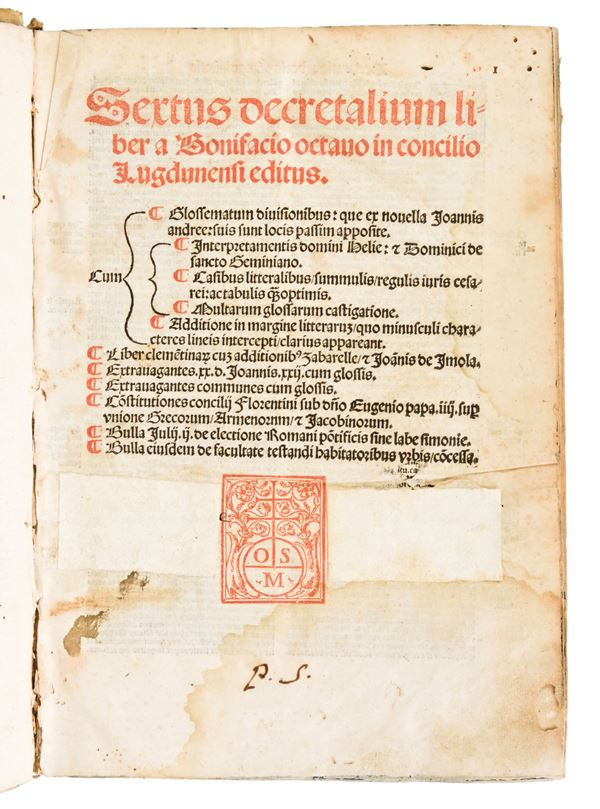 1
Sextus decretalium li-
ber a Bonifacio octauo in concilio
Lugdunensi editus.
Cum
¶ Glossematum diuisionibus: que ex nouella Joannis
andree: suis sunt locis passim apposite.
¶ Interpretamentis domini Helie: ⁊ Dominici de
sancto Geminiano.
¶ Casibus litteralibus/summulis/regulis iuris cesa-
rei: ac tabulis q̃̃optimis.
¶ Multarum glossarum castigatione.
¶ Additione in margine litteraruꝫ/quo minusculi chara-
cteres lineis intercepti/clarius appareant.
¶ Liber clemẽtinaꝝ cuꝫ additionibꝰ Zabarelle/⁊ Joãnis de Jmola.
¶ Extrauagantes.xx.d.Joannis.xxij.cum glossis.
¶ Extrauagantes communes cum glossis.
¶ Cõstitutiones concilij Florentini sub dño Eugenio papa.iiij.sup̲
vnione Grecorum/Armenorum/⁊ Jacobinorum.
¶ Bulla Julij.ij.de electione Romani põtificis sine labe simonie.
¶ Bulla eiusdem de facultate testandi habitatoribus vrbis/cõcessa.
O S
M
P. S.